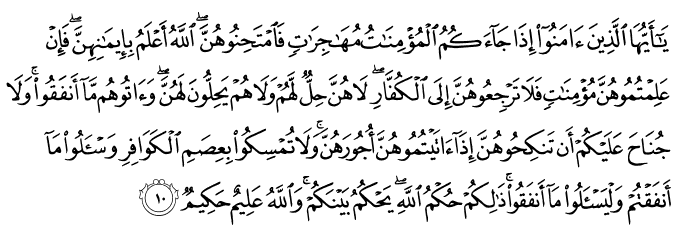 يَٰٓأَيُّهَا ٱلَّذِينَ ءَامَنُوٓا۟ إِذَا جَآءَكُمُ ٱلْمُؤْمِنَٰتُ مُهَٰجِرَٰتٍ فَٱمْتَحِنُوهُنَّ ۖ ٱللَّهُ أَعْلَمُ بِإِيمَٰنِهِنَّ ۖ فَإِنْ
عَلِمْتُمُوهُنَّ مُؤْمِنَٰتٍ فَلَا تَرْجِعُوهُنَّ إِلَى ٱلْكُفَّارِ ۖ لَا هُنَّ حِلٌّ لَّهُمْ وَلَا هُمْ يَحِلُّونَ لَهُنَّ ۖ وَءَاتُوهُم مَّآ أَنفَقُوا۟ ۚ وَلَا
جُنَاحَ عَلَيْكُمْ أَن تَنكِحُوهُنَّ إِذَآ ءَاتَيْتُمُوهُنَّ أُجُورَهُنَّ ۚ وَلَا تُمْسِكُوا۟ بِعِصَمِ ٱلْكَوَافِرِ وَسْـَٔلُوا۟ مَآ
أَنفَقْتُمْ وَلْيَسْـَٔلُوا۟ مَآ أَنفَقُوا۟ ۚ ذَٰلِكُمْ حُكْمُ ٱللَّهِ ۖ يَحْكُمُ بَيْنَكُمْ ۚ وَٱللَّهُ عَلِيمٌ حَكِيمٌ ١٠